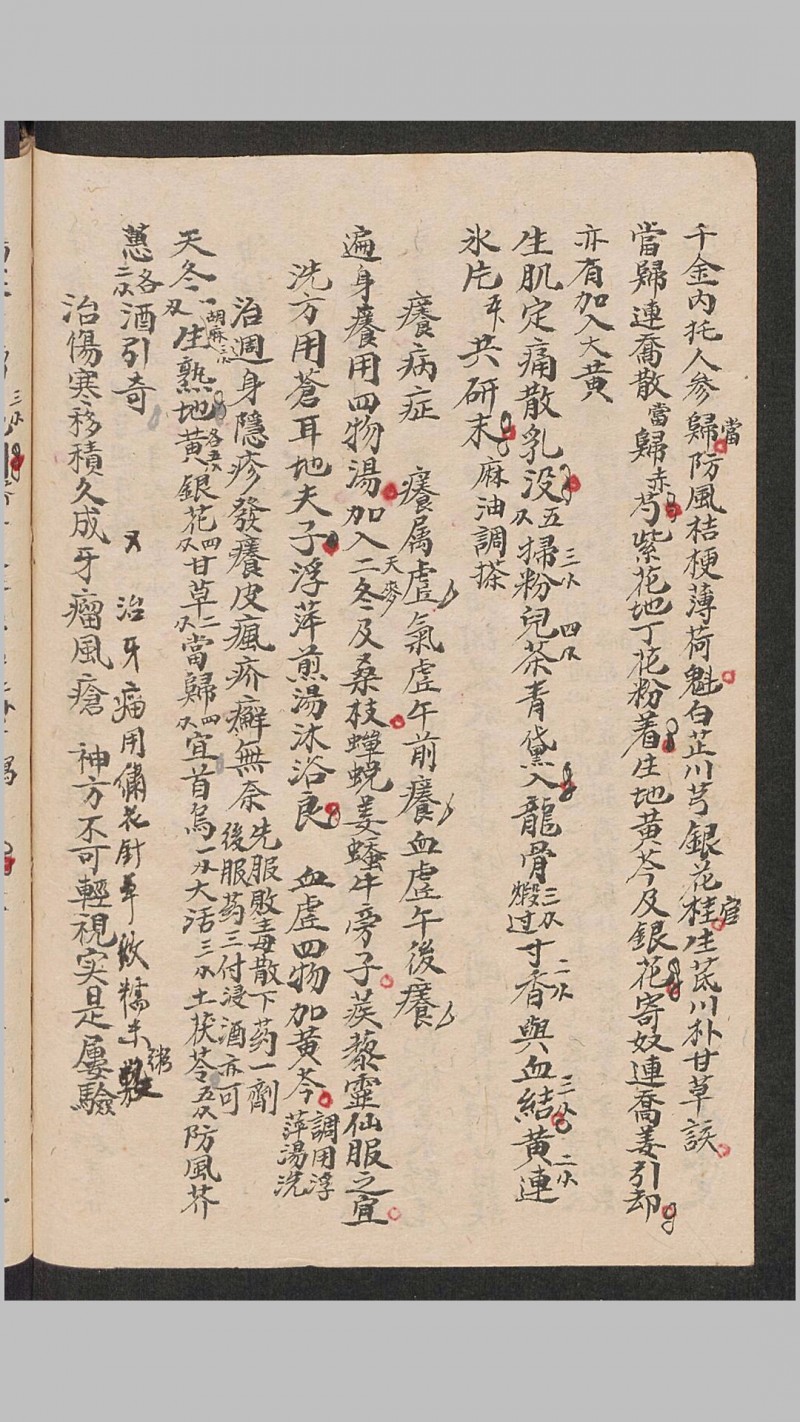 千金內托人參歸當防風桔梗薄荷魁白芷川芎銀花桂官生芪川朴甘草談
當歸連喬散當歸赤芍紫花地丁花粉着生地黃芩及銀花寄奴連喬姜引却
亦有加入大黃
生肌定痛散乳没五掃粉兒茶青黛入龍骨煅过寸香與血結黃連
氷片共研末麻油調搽
癢病症 癢属虛氣虛午前癢血虛午後癢
遍身癢用四物湯加入二冬天麥及桑枝蟬蛻姜蠶牛旁子蒺藜靈仙服之宜
洗方用蒼耳地夫子浮萍煎湯沐浴良 血虛四物加黃芩調用浮萍湯洗
治週身隱疹發癢皮瘋疥癬無奈先服敗毒散下药一劑後服药三付浸酒亦可
天冬一胡麻生熟地黃各五銀花四甘草二當歸四宜首烏一大活三土茯苓五防風芥
蔥各二酒引奇
又治牙痛用繡花針草煅糯米粥
治傷寒移積久成牙瘤風瘡 神方不可輕視实是屢驗